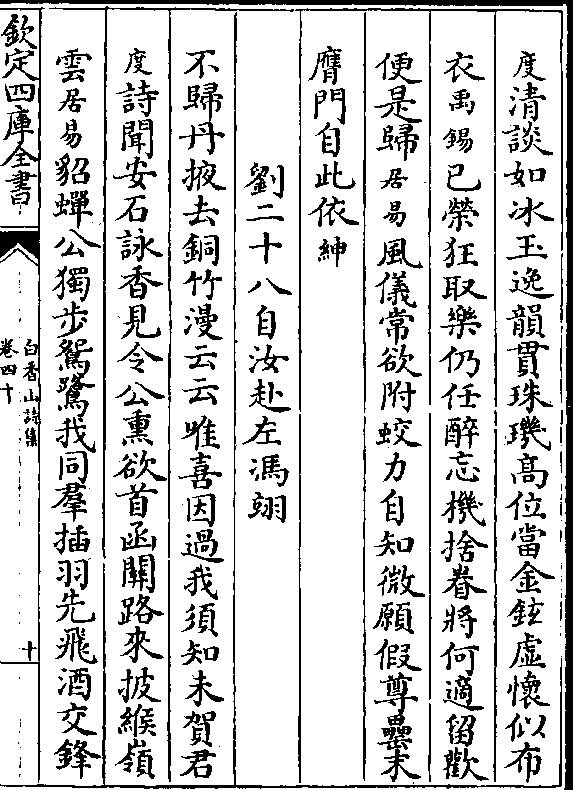 度清談如冰玉逸韻貫珠璣高位當金鉉虛懷似布
衣禹錫已榮狂取樂仍任醉忘機捨眷將何適留歡
便是歸居易風儀常欲附蛟力自知微願假尊罍末
膺門自此依紳
劉二十八自汝赴左馮翊
不歸丹掖去銅竹漫云云唯喜因過我須知未賀君
度詩聞安石詠香見令公熏欲首函關路來披緱嶺
雲居易貂蟬公獨步鴛鷺我同羣插羽先飛酒交鋒
欽定四庫全書
白香山詩集
卷四十
十